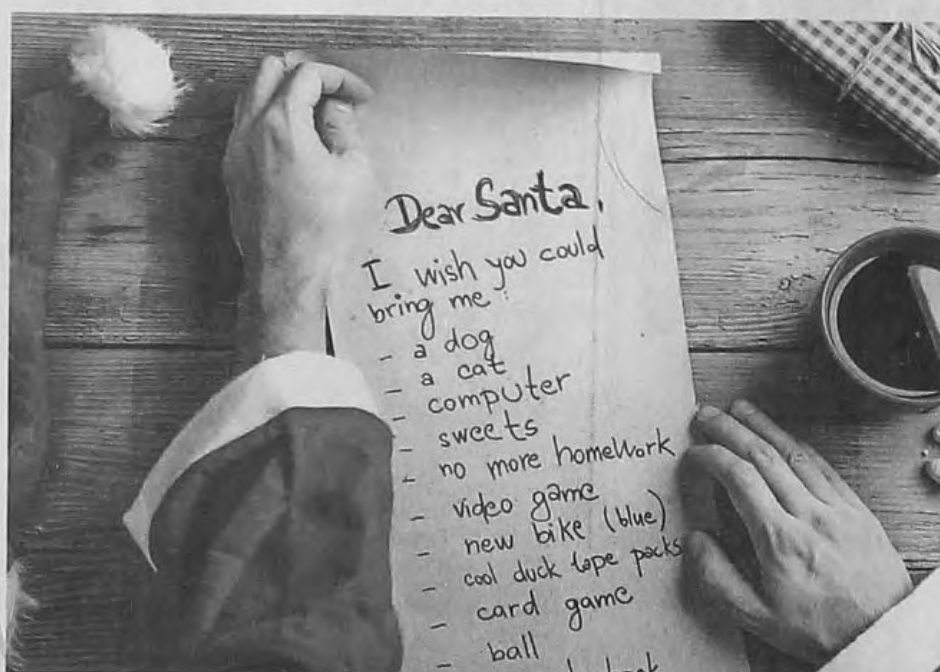 Dear Santa,
I wish you could
bring me :
- a dog
- a cat
- computer
- sweets
- no more homework
- video game
- new bike (blue)
- cool duck tape packs
- card game
- ball